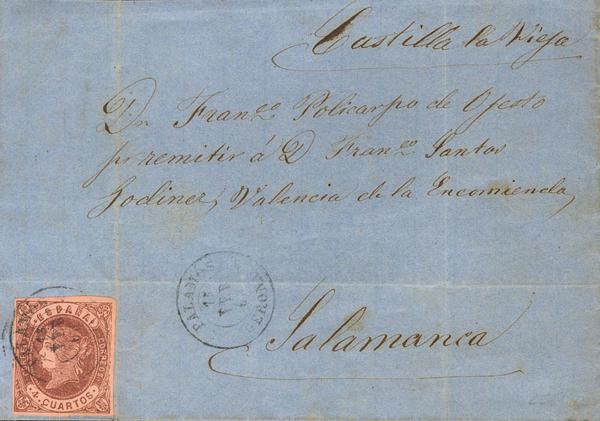 Castilla la Vieja
Dn Franco Policarpo de Ojesto
pr remitir á D Franco Santos
Godinez, Valencia de la Encomienda,
Salamanca
PALAMOS
GERONA
ESPAÑA
CORREOS
4 CUARTOS